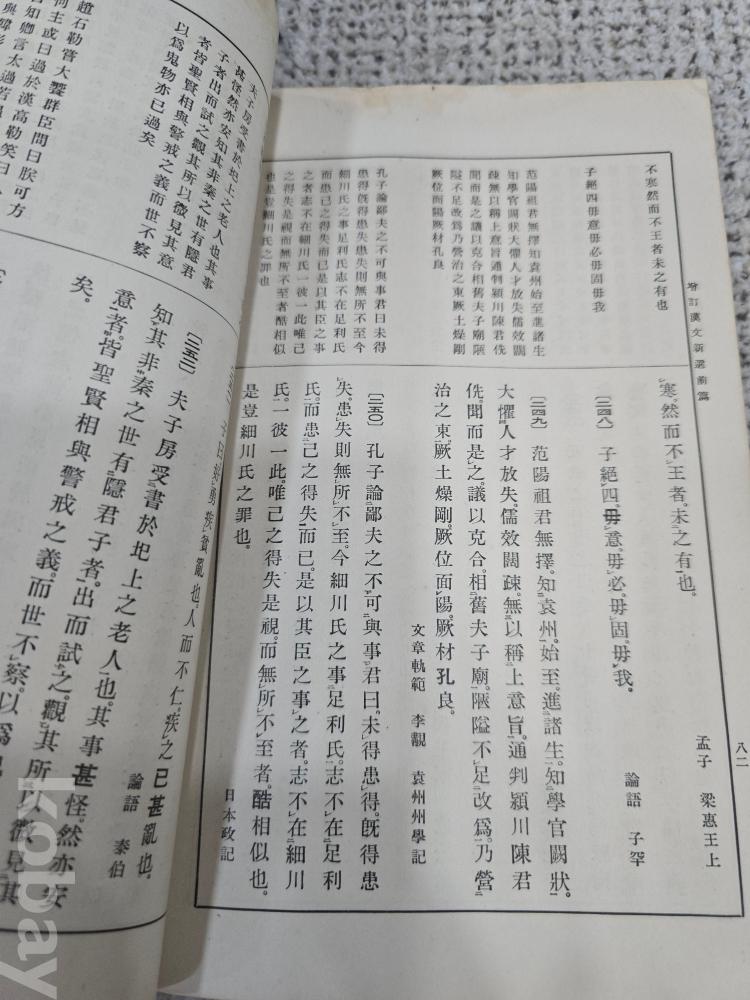 增訂漢文新選前篇
八二
不寒然而不王者未之有也
子絕四毋意毋必毋固毋我
范陽祖君無擇知袁州始至進諸生
知學官闕狀大懼人才放失儒效闊
疎無以稱上意旨通判穎川陳君侁
聞而是之議以克合相舊夫子廟陿
隘不足改爲乃營治之東厥土燥剛
厥位面陽厥材孔良
孔子論鄙夫之不可與事君曰未得
患得旣得患失患失則無所不至今
細川氏之事足利氏志不在足利氏
而患己之得失而已是以其臣之事
之者志不在細川氏一彼一此唯己
之得失是視而無所不至者酷相似
也是豈細川氏之罪也
寒。然而不王者。未之有也。
孟子 梁惠王上
〔二四八〕 子絕四。毋意。毋必。毋固。毋我。
論語 子罕
〔二四九〕 范陽祖君無擇。知袁州。始至。進諸生。知學官闕狀。
大懼人才放失。儒效闊疎。無以稱上意旨。通判穎川陳君
侁。聞而是之。議以克合。相舊夫子廟。陿隘不足改爲。乃營
治之東。厥土燥剛。厥位面陽。厥材孔良。
文章軌範 李覯 袁州州學記
〔二五〇〕 孔子論鄙夫之不可與事君曰。未得患得。旣得患
失。患失則無所不至。今細川氏之事足利氏。志不在足利
氏。而患己之得失而已。是以其臣之事之者。志不在細川
氏。一彼一此。唯己之得失是視。而無所不至者。酷相似也。
是豈細川氏之罪也。
日本政記
夫子房受書於圯上之老人也其事
甚怪然亦安知其非秦之世有隱君
子者出而試之觀其所以微見其意
者皆聖賢相與警戒之義而世不察
以爲鬼物亦已過矣
趙石勒嘗大饗群臣問曰朕可方
何主或曰過於漢高勒笑曰
知卿言太過若
勇疾貧亂也。人而不仁。疾之已甚亂也。
論語 泰伯
〔二五二〕 夫子房受書於圯上之老人也。其事甚怪。然亦安
知其非秦之世有隱君子者。出而試之。觀其所以微見其
意者。皆聖賢相與警戒之義。而世不察。以爲
矣。
kobay